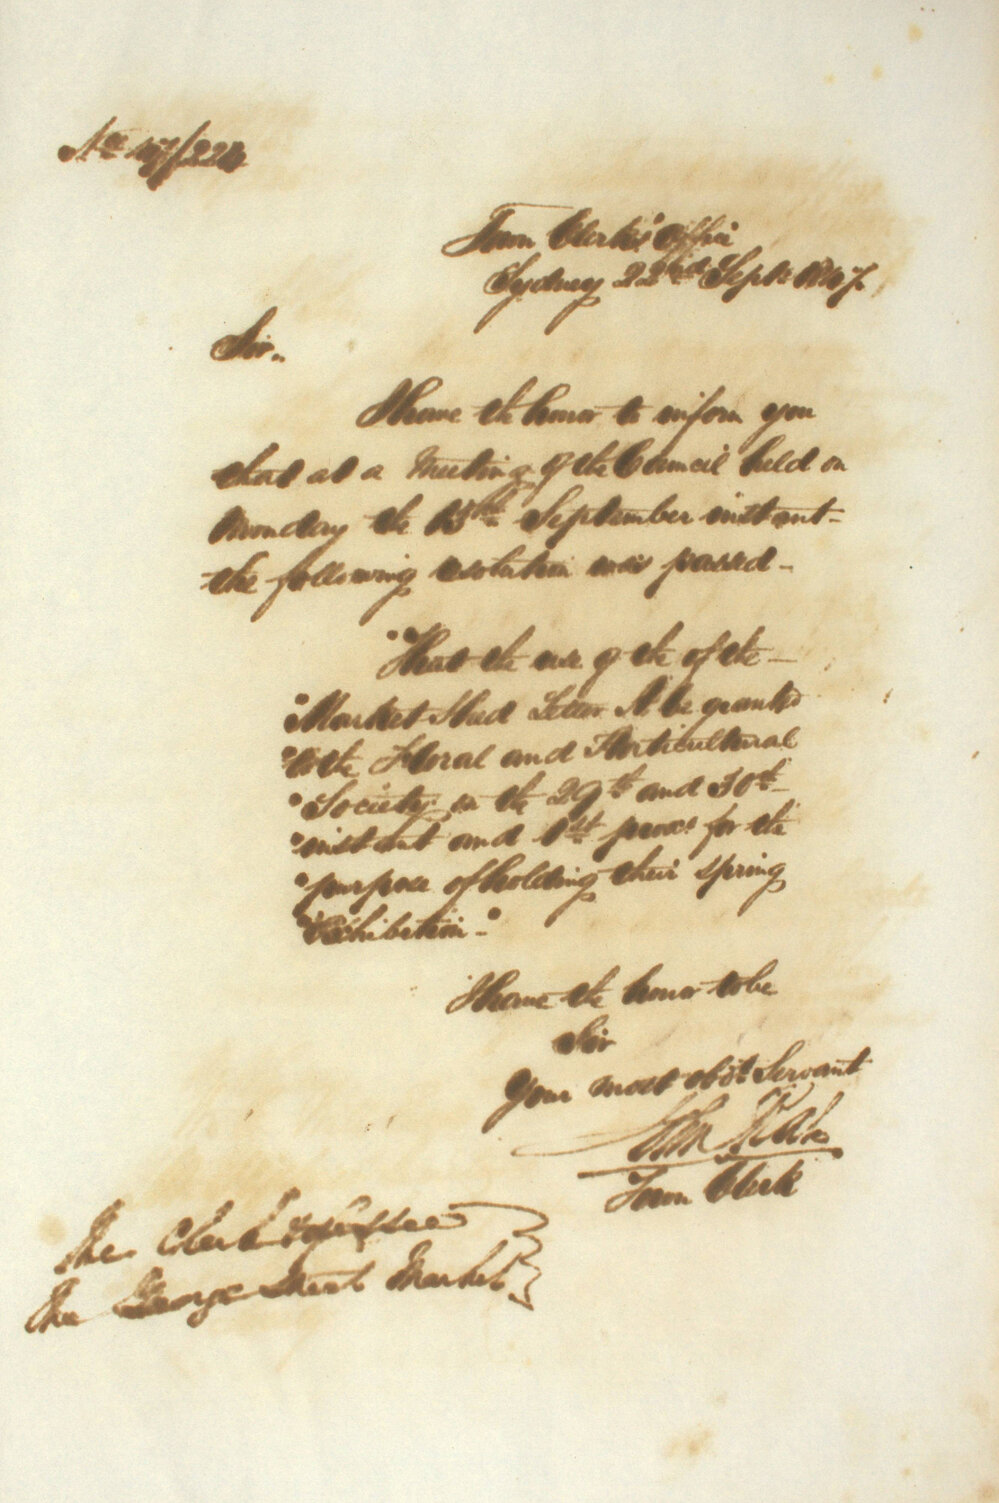 No 47/224
Town Clerk's Office
Sydney 22nd Sept 1847.
Sir.
I have the honor to inform you
that at a Meeting of the Council held on
Monday the 13th September instant-
the following resolution was passed-
"That the use of the of the-
"Market Shed Letter A. be granted
"to the Floral and Horticultural
"Society on the 29th and 30th-
"instant and 1st proxo for the
"purpose of holding their spring
"Exhibition-"
I have the honor to be
Sir
Your most obdt Servant
John Rae
Town Clerk
The Clerk of
The George Street Market